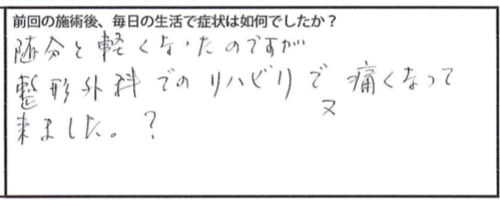 前回の施術後、毎日の生活で症状は如何でしたか？
随分と軽くなったのですが
整形外科でのリハビリで又痛くなって
来ました。？